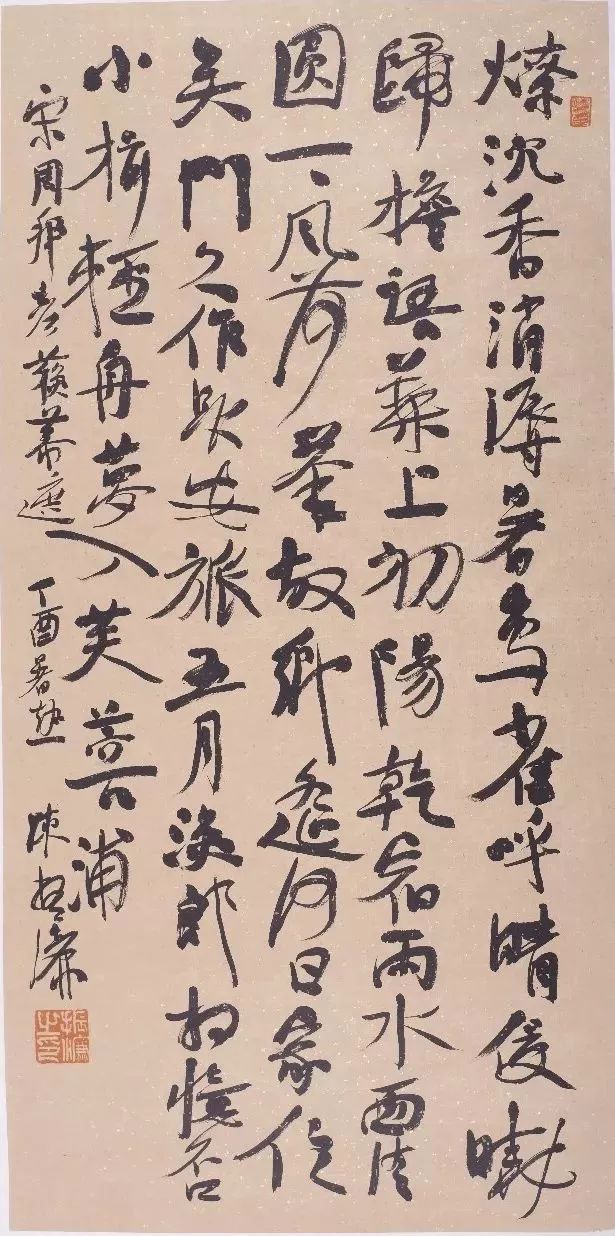 燎沈香消溽暑鳥雀呼晴侵曉
歸檐語葉上初陽乾宿雨水面清
圓一一風荷舉故鄉遙何日家住
吳門久作長安旅五月漁郎相憶否
小楫輕舟夢入芙蓉浦
宋周邦彥蘇幕遮 丁酉暑 陳振濂
振濂之印